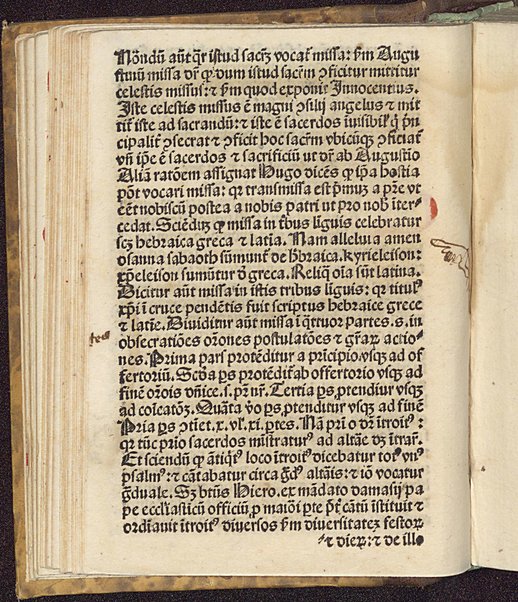 Nōndū aūt q̄r istud sacrȝ vocat᷑ missa: ẜm Augu
stinū missa dr̄ ꝙ dum istud sacrm̄ ꝯficitur mittitur
celestis missus: ⁊ ẜm quod exponit Innocentius.
Iste celestis missus ē magni ꝯsilij angelus ⁊ mit
tit᷑ iste ad sacrandū: ⁊ iste ē sacerdos īuisibil' q̇ pn̄
cipalit᷑ ꝯsecrat ⁊ ꝯficit hoc sacrm̄ vbicūqꝫ ꝯficiat᷑
vn̄ ip̄e ē sacerdos ⁊ sacrificiū ut dr̄ ab Augustīo
Aliā ratōem assignat Hugo dicēs ꝙ ip̄a hostia
pōt vocari missa: qr transmissa est pͥmuȝ a pr̄e vt
eēt nobiscū postea a nobis patri ut pro nob̄ iter-
cedat. Sciēdūȝ ꝙ missa in tͥbus liguis celebratur
scȝ hebraica greca ⁊ latīa. Nam alleluia amen
osanna sabaoth sūmunt᷑ de hb̄raica. kyrieleison:
xp̄eleison sumūtur ð greca. Reliq̄ oīa sūt latina.
Dicitur aūt missa in istis tribus liguis: qr titulꝰ
xp̄i ī cruce pendētis fuit scriptus hebraice grece
⁊ latīe. Diuiditur aūt missa ī qͣttuor partes. s. in
obsecratiōes orōnes postulatōes ⁊ gr̄aꝝ actio-
nes. Prima pars protēditur a prīcipio vsqꝫ ad of
fertoriū. Scd̄a ꝑs protēdit᷑ ab offertorio vsqꝫ ad
finē orōis dn̄ice. i. pr̄ nr̄. Tertia ꝑs ꝓtendiur vsqꝫ
ad coīcatōȝ. Quāta v̊o ꝑs ꝓtenditur vsqꝫ ad finē
Pria ꝑs ꝯtiet. x. vl̄. xi. ꝑtes. Nā prī o dr̄ ītroitꝰ :
qr tūc prio sacerdos mīstraturꝰ ad altāe dȝ ītrar̄.
Et sciendū ꝙ ātiqͥtꝰ loco ītroitꝰ dicebatur totꝰ vnꝰ
psalmꝰ: ⁊ cātabatur circa gͣdꝰ altāis: ⁊ iō vocatur
gͣduale. Sȝ btūs Hiero. ex mādato damasij pa
pe eccl'iasticū officiū ꝓ maiōi ꝑte pͤt᷑ cātū istituit ⁊
ordīauit ītroitꝰ diuersos ẜm diuersitateȝ festoꝝ
⁊ dieꝝ: ⁊ de illo